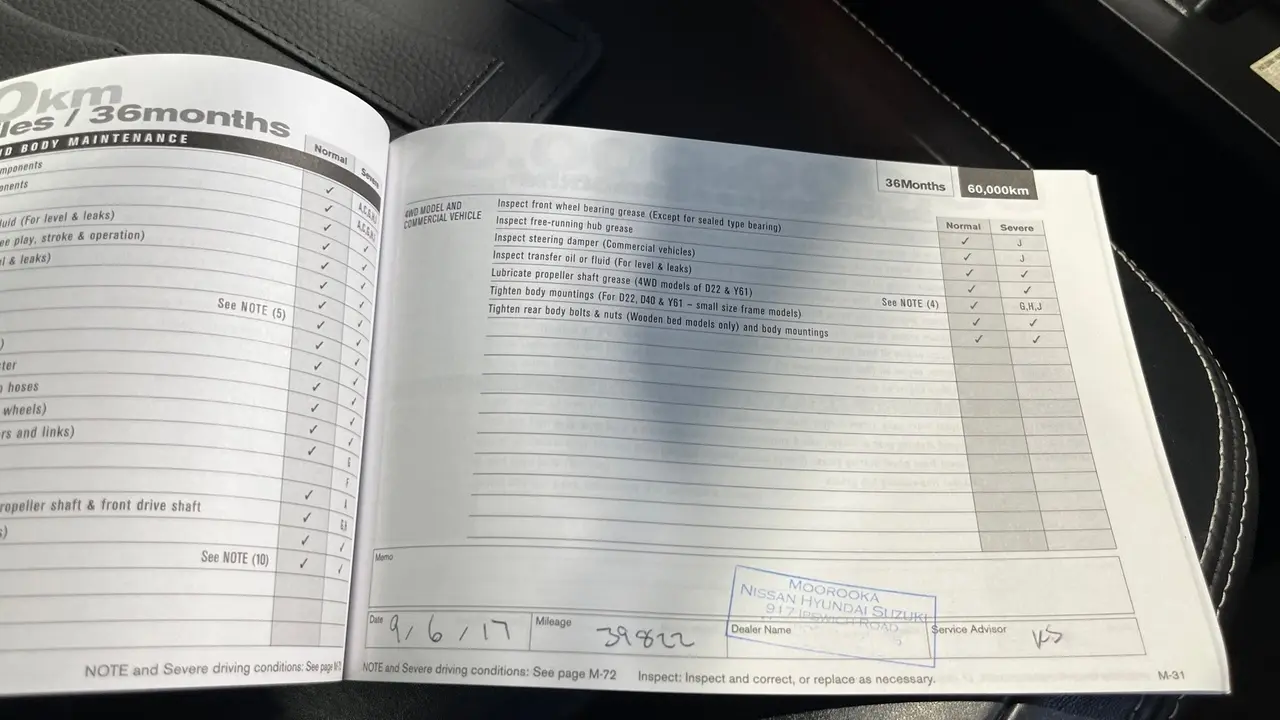 0km
les / 36months
ND BODY MAINTENANCE
Normal
mponents
onents
luid (For level & leaks)
ee play, stroke & operation)
el & leaks)
See NOTE (5)
)
ter
hoses
wheels)
rs and links)
ropeller shaft & front drive shaft
s)
See NOTE (10)
NOTE and Severe driving conditions: See page
36Months 60,000km
Normal Severe
4WD MODEL AND
COMMERCIAL VEHICLE
Inspect front wheel bearing grease (Except for sealed type bearing) ✓ J
Inspect free-running hub grease ✓ J
Inspect steering damper (Commercial vehicles) ✓ ✓
Inspect transfer oil or fluid (For level & leaks) ✓ ✓
Lubricate propeller shaft grease (4WD models of D22 & Y61) See NOTE (4) ✓ G,H,J
Tighten body mountings (For D22, D40 & Y61 – small size frame models) ✓ ✓
Tighten rear body bolts & nuts (Wooden bed models only) and body mountings ✓ ✓
Memo
MOOROOKA
NISSAN HYUNDAI SUZUKI
917 IPSWICH ROAD
Date 9/6/17 Mileage 39822 Dealer Name Service Advisor
NOTE and Severe driving conditions: See page M-72 Inspect: Inspect and correct, or replace as necessary.
M-31